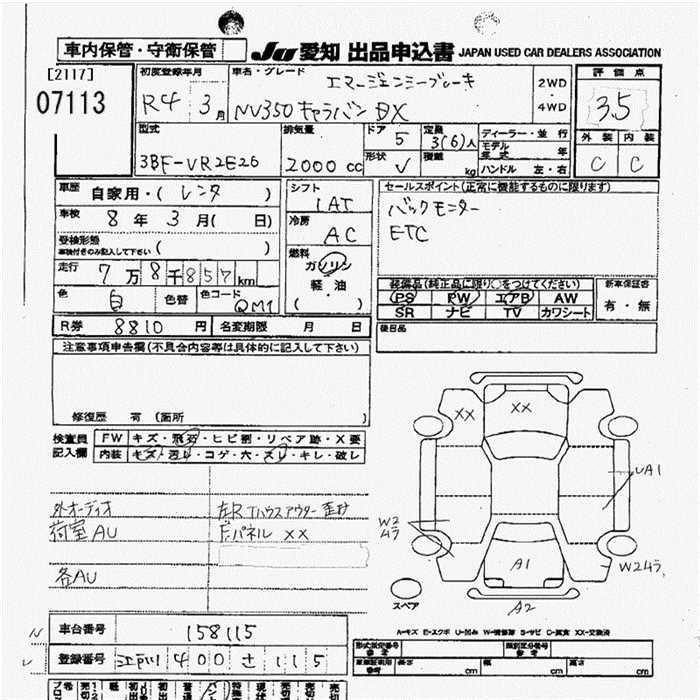 車内保管・守衛保管
JU 愛知 出品申込書 JAPAN USED CAR DEALERS ASSOCIATION
[2117]
07113
初度登録年月
R4 3月
車名・グレード
エマージェンシーブレーキ
NV350キャラバン DX
2WD
・
4WD
評価点
3.5
外装 内装
C C
型式
3BF-VR2E26
排気量
2000 cc
ドア
5
定員
3(6)人
形状
V
積載
kg
ディーラー・並行
モデル
年式 年
ハンドル 左・右
車歴 自家用・(レンタ)
車検 8年 3月( 日)
受検形態
車検付きのみ記入して下さい ( )
走行 7万8千857km
色 白 色替 色コード QM1
シフト
IAT
冷房
AC
燃料
ガソリン
軽油
( )
セールスポイント(正常に機能するものに限ります)
バックモニター
ETC
装備品(純正品に限り○をつけてください)
PS PW エアB AW
SR ナビ TV カワシート
新車保証書
有・無
後日品
R券 8810円 名変期限 月 日
注意事項申告欄(不具合内容等は具体的に記入して下さい)
修復歴 有 (箇所 )
検査員
記入欄
FW キズ・飛石・ヒビ割・リペア跡・X要
内装 キズ・汚レ・コゲ・穴・スレ・キレ・破レ
外オーディオ
荷室AU
各AU
左R Tハウスアウター歪み
Fパネル XX
XX XX
UA1
W2
ムラ
A1
W2ムラ
A2
スペア
A-キズ E-エクボ U-凹み W-補修跡 S-サビ C-腐食 XX-交換済
車台番号 158115
登録番号 400 さ 115
形式指定番号
参考
類別区分番号
参考
長さ cm 幅 cm 高さ cm